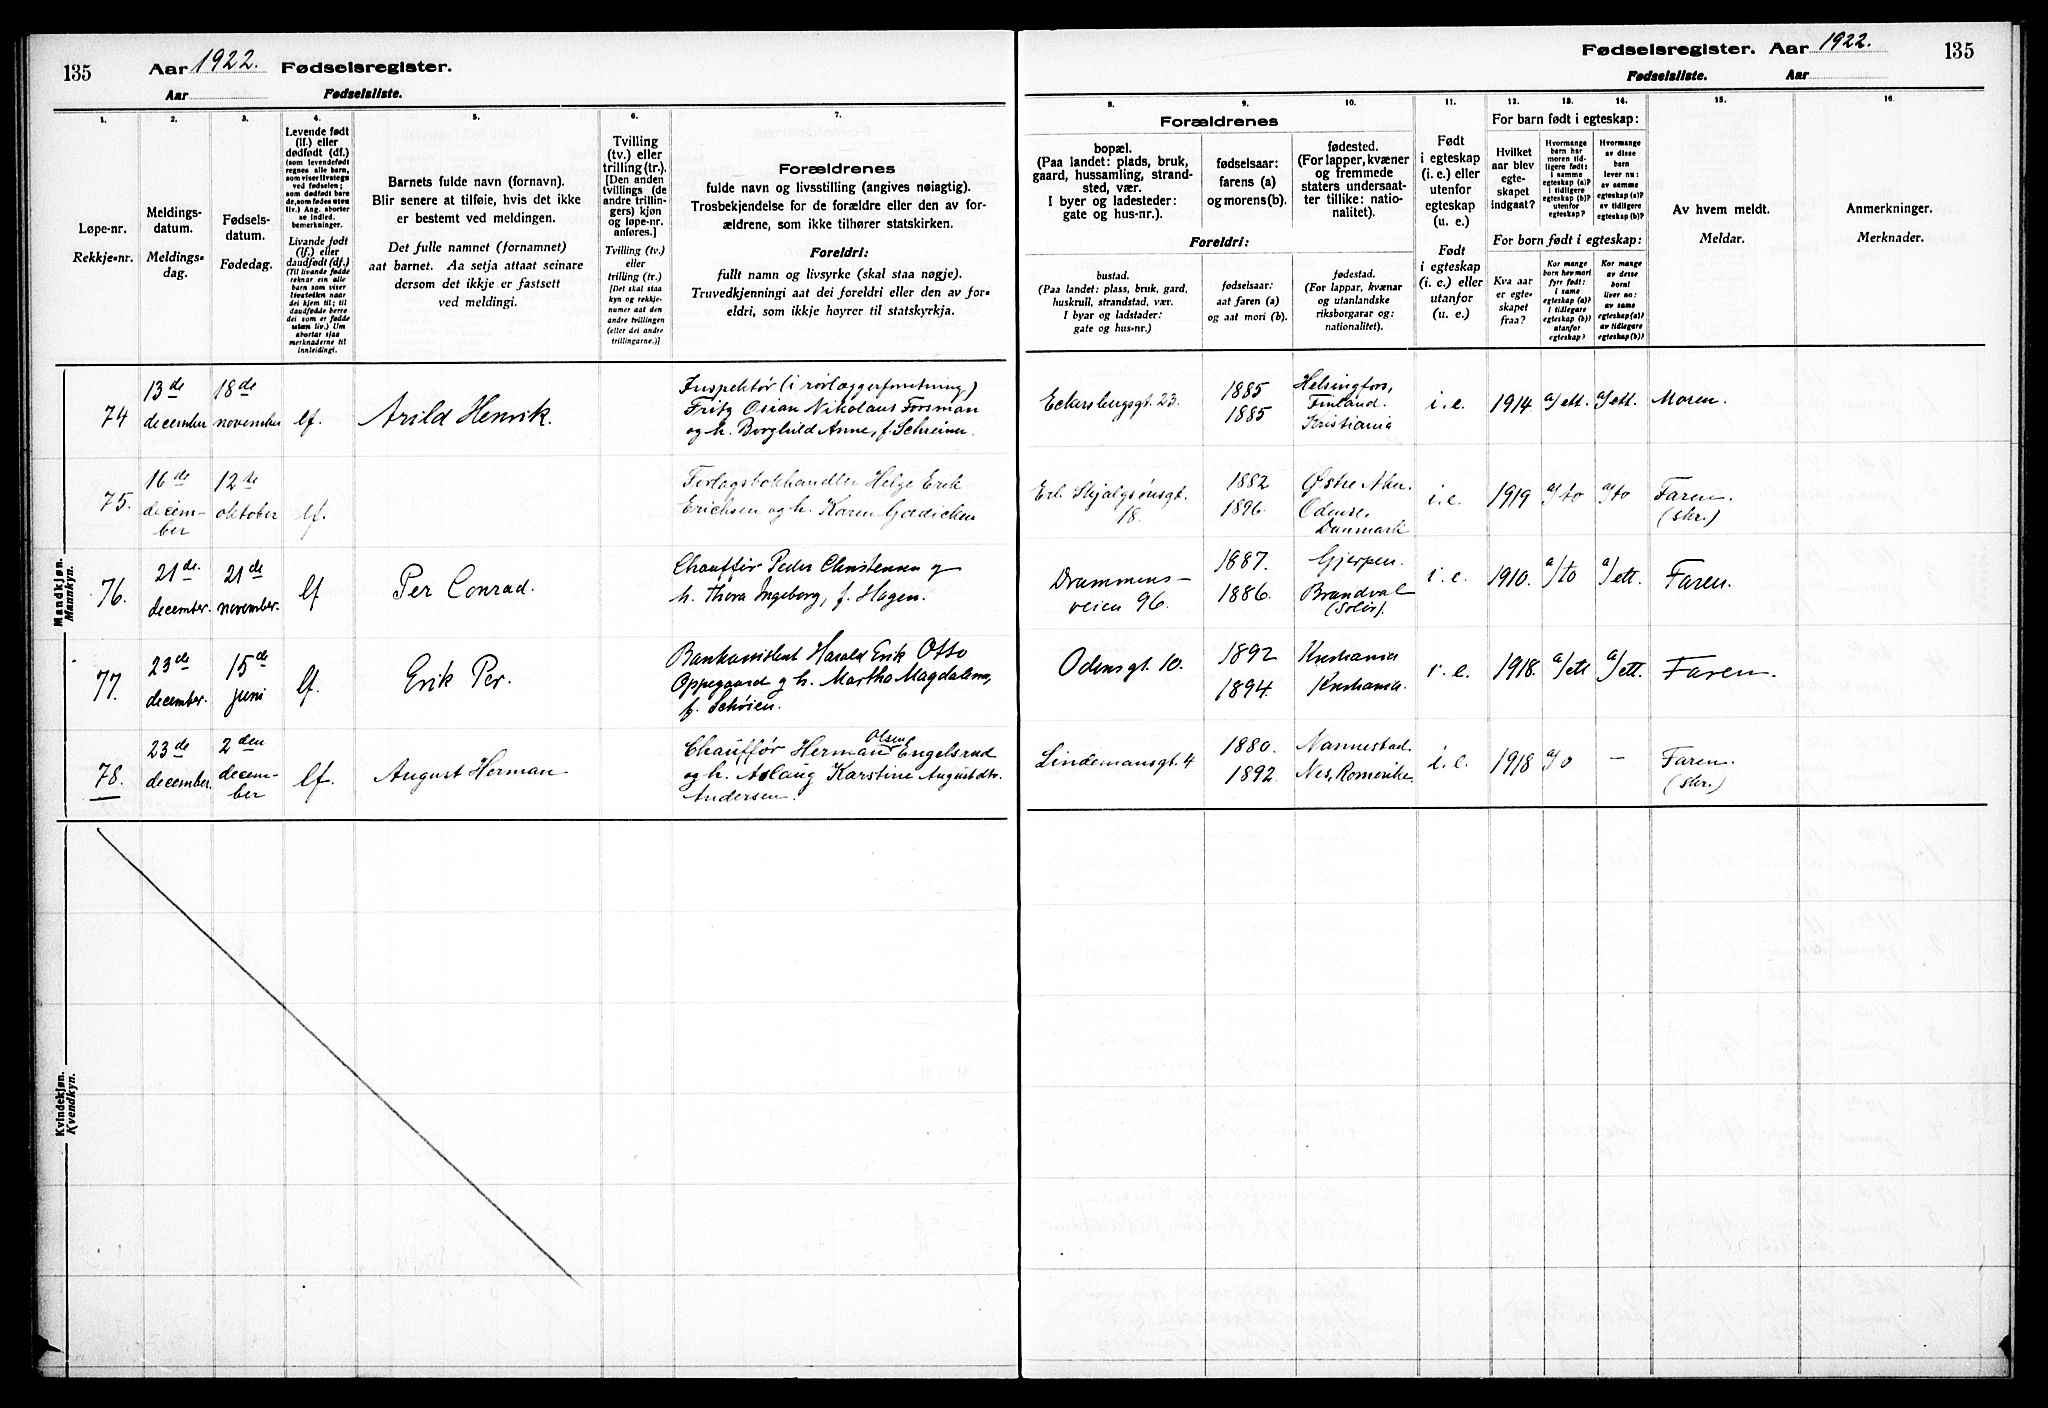 135
Aar 1922. Fødselsregister.
Aar Fødselsliste.
1. 2. 3. 4. 5. 6. 7.
Løpe-nr.
Rekkje-nr.
Meldings-
datum.
Meldings-
dag.
Fødsels-
datum.
Fødedag.
Levende født
(lf.) eller
dødfødt (df.)
(som levendefødt
regnes alle barn,
som viser livstegn
ved fødselen;
som dødfødt bare
de, som fødes uten
liv.) Ang. aborter
se indled.
bemerkninger.
Livande født
(lf.) eller
daudfødt (df.)
(Til livande fødde
reknar ein alle
barn som viser
livsteikn naar
dei kjem til; til
daudfødde berre
dei som er fødde
utan liv.) Um
abortar sjaa
merknaderne til
innleidingi.
Barnets fulde navn (fornavn).
Blir senere at tilføie, hvis det ikke
er bestemt ved meldingen.
Det fulle namnet (fornamnet)
aat barnet. Aa setja attaat seinare
dersom det ikkje er fastsett
ved meldingi.
Tvilling
(tv.) eller
trilling (tr.).
[Den anden
tvillings (de
andre trillin-
gers) kjøn
og løpe-nr.
anføres.]
Tvilling (tv.)
eller
trilling (tr.)
[Det skal staa
kyn og rekkje-
numer aat den
andre tvillingen
(eller dei andre
trillingarne.)]
Forældrenes
fulde navn og livsstilling (angives nøiagtig).
Trosbekjendelse for de forældre eller den av for-
ældrene, som ikke tilhører statskirken.
Foreldri:
fullt namn og livsyrke (skal staa nøgje).
Truvedkjenningi aat dei foreldri eller den av for-
eldri, som ikkje høyrer til statskyrkja.
Mandkjøn.
Mannkyn.
74
13de
december
18de
november
lf.
Arild Henrik.
Inspektør (i rørlæggerforretning)
Fritz Osian Nikolaus Forsman
og h. Borghild Anne, f. Schreiner.
75.
16de
decem-
ber
12te
oktober
lf.
Forlagsbokhandler Helge Erik
Erichsen og h. Karen Gædicken
76.
21de
december.
21de
november.
lf
Per Conrad.
Chauffør Peder Christensen og
h. Thora Ingeborg, f. Hagen.
77.
23de
december.
15de
juni
lf.
Erik Per.
Bankassistent Harald Erik Otto
Oppegaard og h. Martha Magdalena,
f. Schøien.
78.
23de
december.
2den
decem-
ber
lf.
August Herman
Chauffør Herman Olsen Engelsrud
og h. Aslaug Karstine Augustdtr.
Andersen.
Kvindekjøn.
Kvendkyn.
Fødselsregister. Aar 1922. 135
Fødselsliste. Aar
8. 9. 10. 11. 12. 13. 14. 15. 16.
Forældrenes
bopæl.
(Paa landet: plads, bruk,
gaard, hussamling, strand-
sted, vær.
I byer og ladesteder:
gate og hus-nr.).
fødselsaar:
farens (a)
og morens (b).
fødested.
(For lapper, kvæner
og fremmede
staters undersaat-
ter tillike: natio-
nalitet).
Foreldri:
bustad.
(Paa landet: plass, bruk, gard,
huskrull, strandstad, vær.
I byar og ladstader:
gate og hus-nr.)
fødselsaar:
aat faren (a)
og aat mori (b).
fødestad.
(For lappar, kvænar
og utanlandske
riksborgarar og:
nationalitet).
Født
i egteskap
(i. e.) eller
utenfor
egteskap
(u. e.).
Født
i egteskap
(i. e.) eller
utanfor
(u. e.).
For barn født i egteskap:
Hvilket
aar blev
egte-
skapet
indgaat?
Hvormange
barn har
moren tid-
ligere født:
i samme
egteskap (a)?
i tidligere
egteskap (b)?
utenfor
egteskap?
Hvormange
av disse
barn
lever nu:
av samme
egteskap (a)?
av tidligere
egteskap (b)?
For born født i egteskap:
Kva aar
er egte-
skapet
fraa?
Kor mange
born hev mori
fyrr født:
i same
egteskap (a)?
i tidlegare
egteskap (b)?
utanfor
egteskap?
Kor mange
av desse
borni
liver no:
av same
egteskap (a)?
av tidlegare
egteskap (b)?
Av hvem meldt.
Meldar.
Anmerkninger.
Merknader.
Eckersbergsgt. 23.
1885
1885
Helsingfors,
Finland.
Kristiania
i. e.
1914
a/ett.
a/ett.
Moren.
Erl. Skjalgsønsgt.
18.
1882
1896.
Østre Aker.
Odense,
Danmark
i. e.
1919
a/to
a/to
Faren.
(skr.)
Drammens-
veien 96.
1887.
1886.
Gjerpen.
Brandval
(Solør).
i. e.
1910.
a/to
a/ett.
Faren.
Odensgt. 10.
1892
1894.
Kristiania
Kristiania.
i. e.
1918.
a/ett
a/ett.
Faren.
Lindemansgt. 4
1880.
1892.
Nannestad.
Nes, Romerike.
i. e.
1918
a/o
–
Faren.
(skr.)